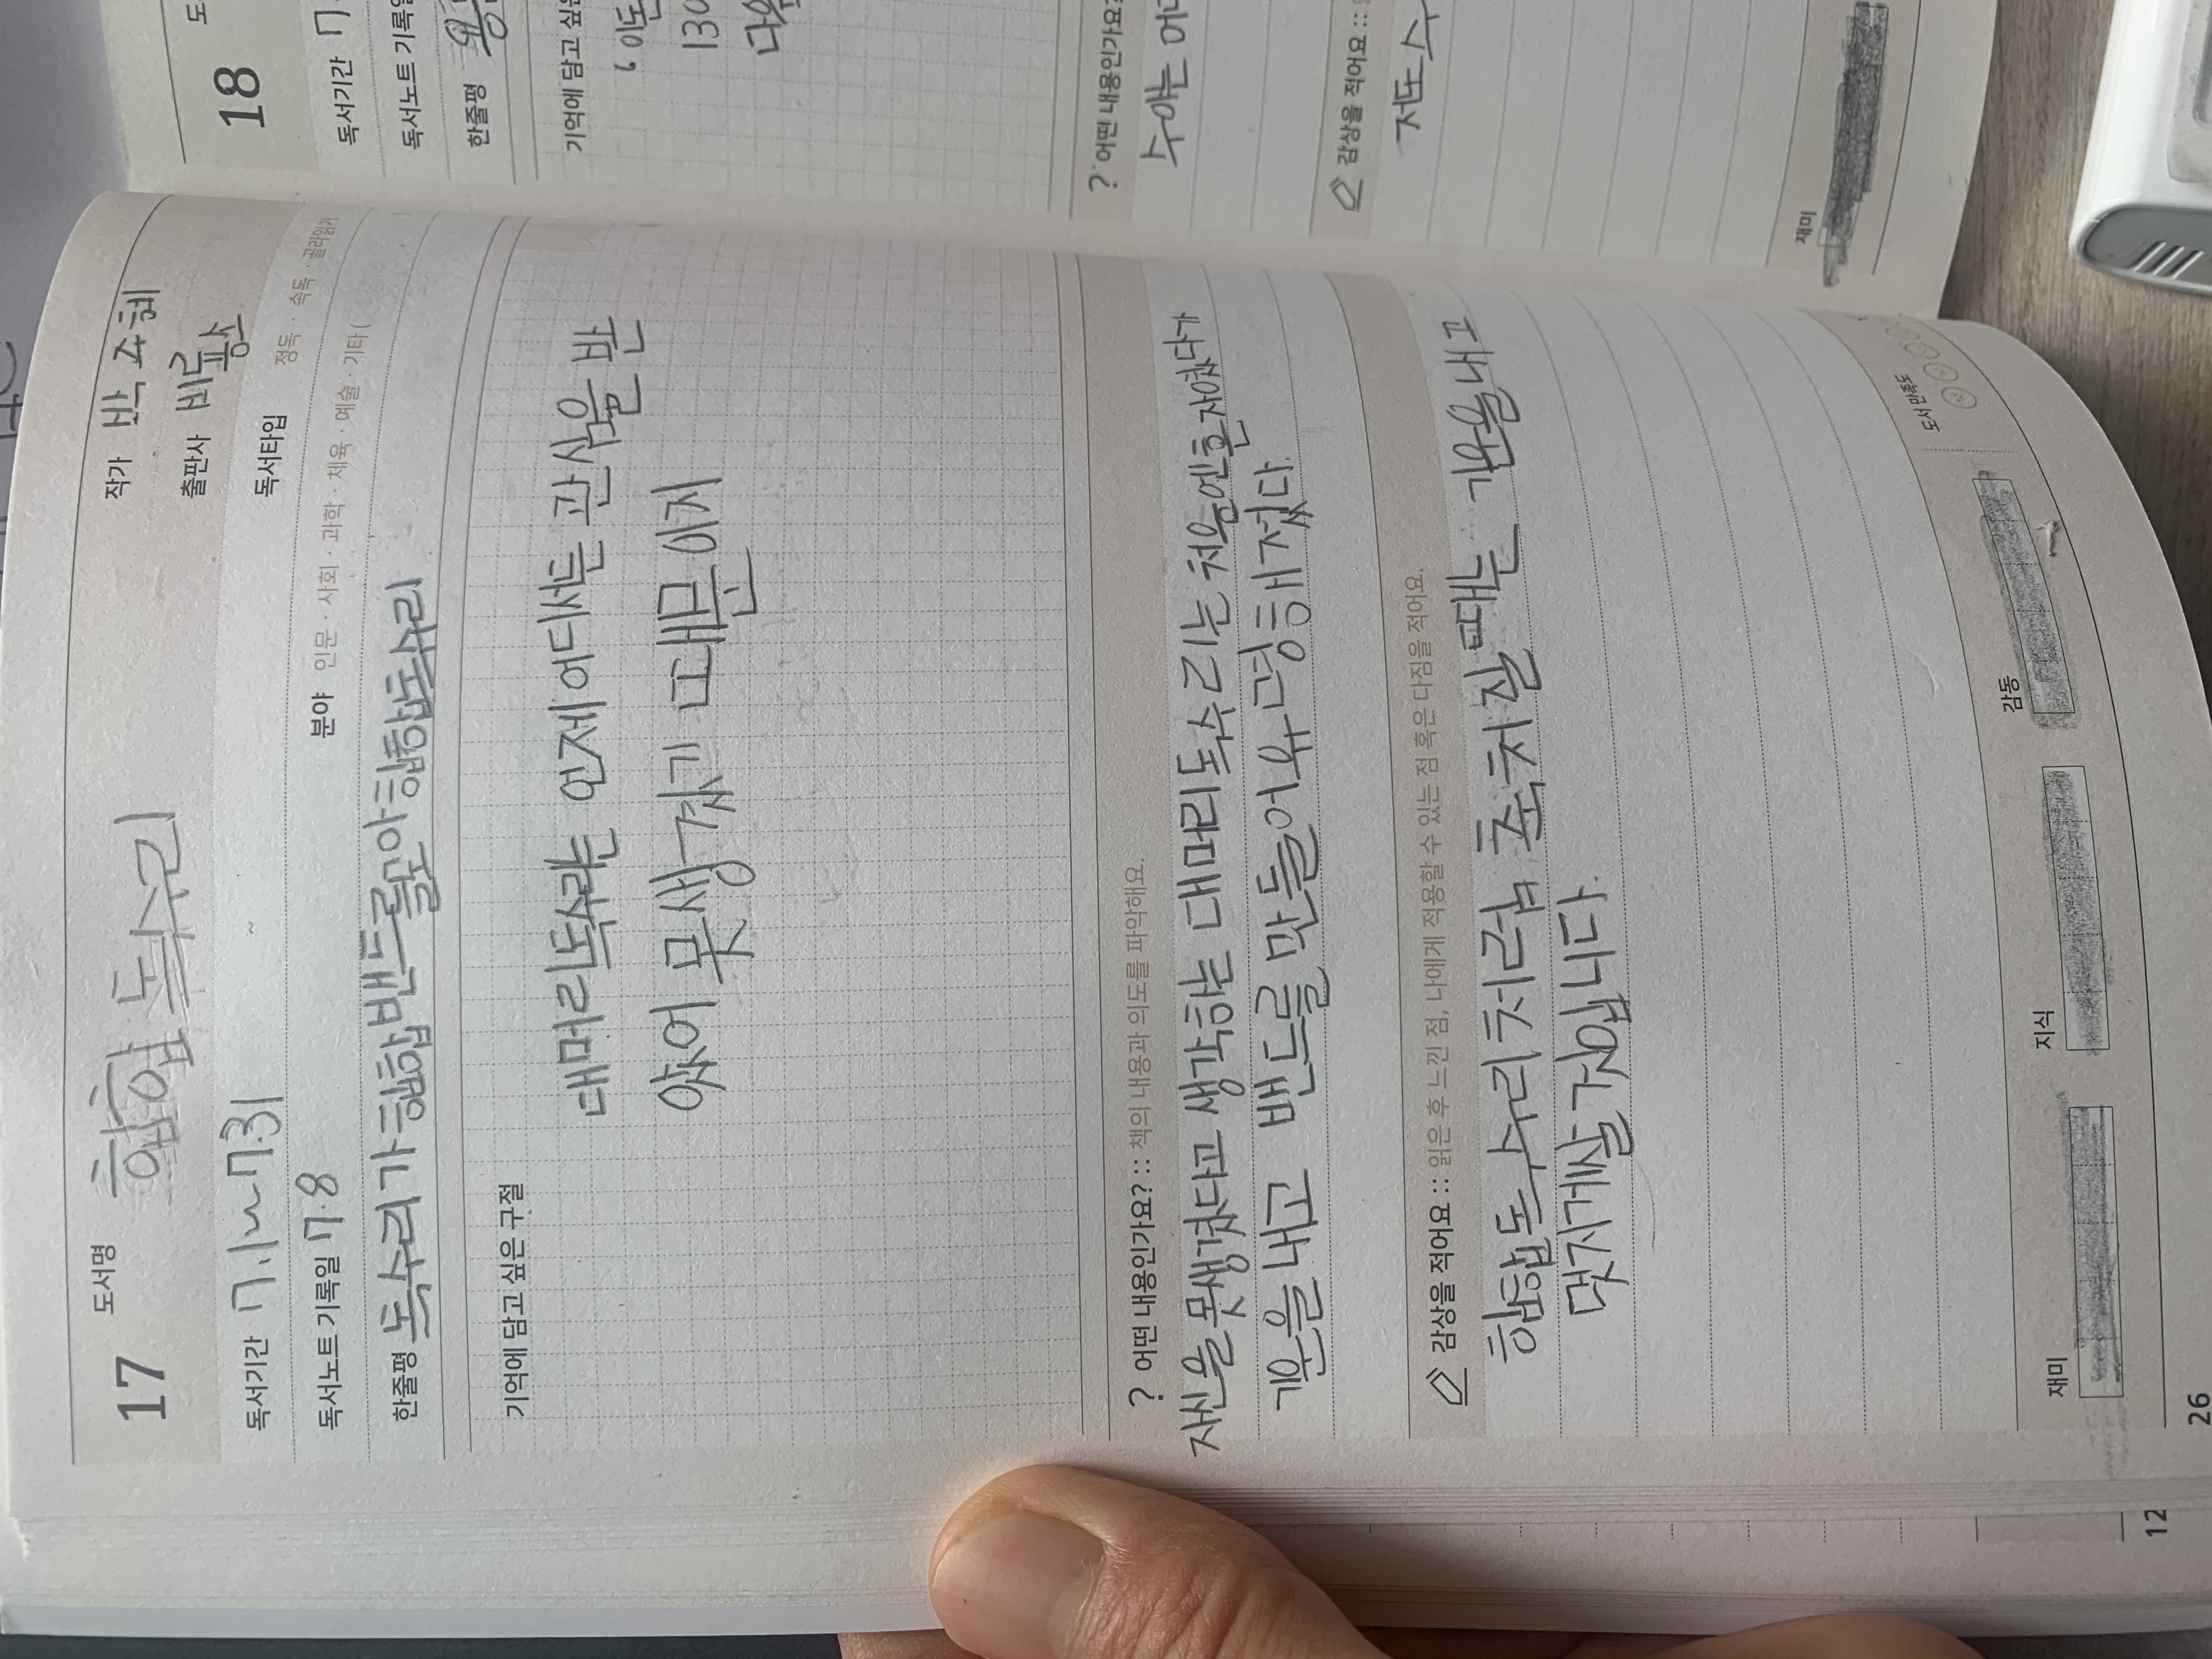 17 도서명 힙합 독수리
작가 박주혜
출판사 비룡소
독서기간 7.1~7.31 ~
독서타입 정독 · 속독 · 골라읽기
독서노트 기록일 7.8
분야 인문 · 사회 · 과학 · 체육 · 예술 · 기타 (
한줄평 독수리가 힙합 밴드를모아 힙합독수리
기억에 담고 싶은 구절
대머리독수리는 언제어디서든 관심을 받
았어 못생겼기 때문이지
? 어떤 내용인가요? :: 책의 내용과 의도를 파악해요.
자신을 못생겼다고 생각하는 대머리독수리는 처음엔혼자였다가
기운을 내고 밴드를 만들어유명해졌다.
감상을 적어요 :: 읽은 후 느낀 점, 나에게 적용할 수 있는 점 혹은 다짐을 적어요.
힙합독수리처럼 축처질때는 기운을내고
멏지게살 것입니다.
재미
지식
감동
도서 만족도
26
12
18
독서기간 7
독서노트 기록일
한줄평
기억에 담고 싶은
130
? 어떤 내용인가요?
수아는
감상을 적어요 ::
저도 수
재미